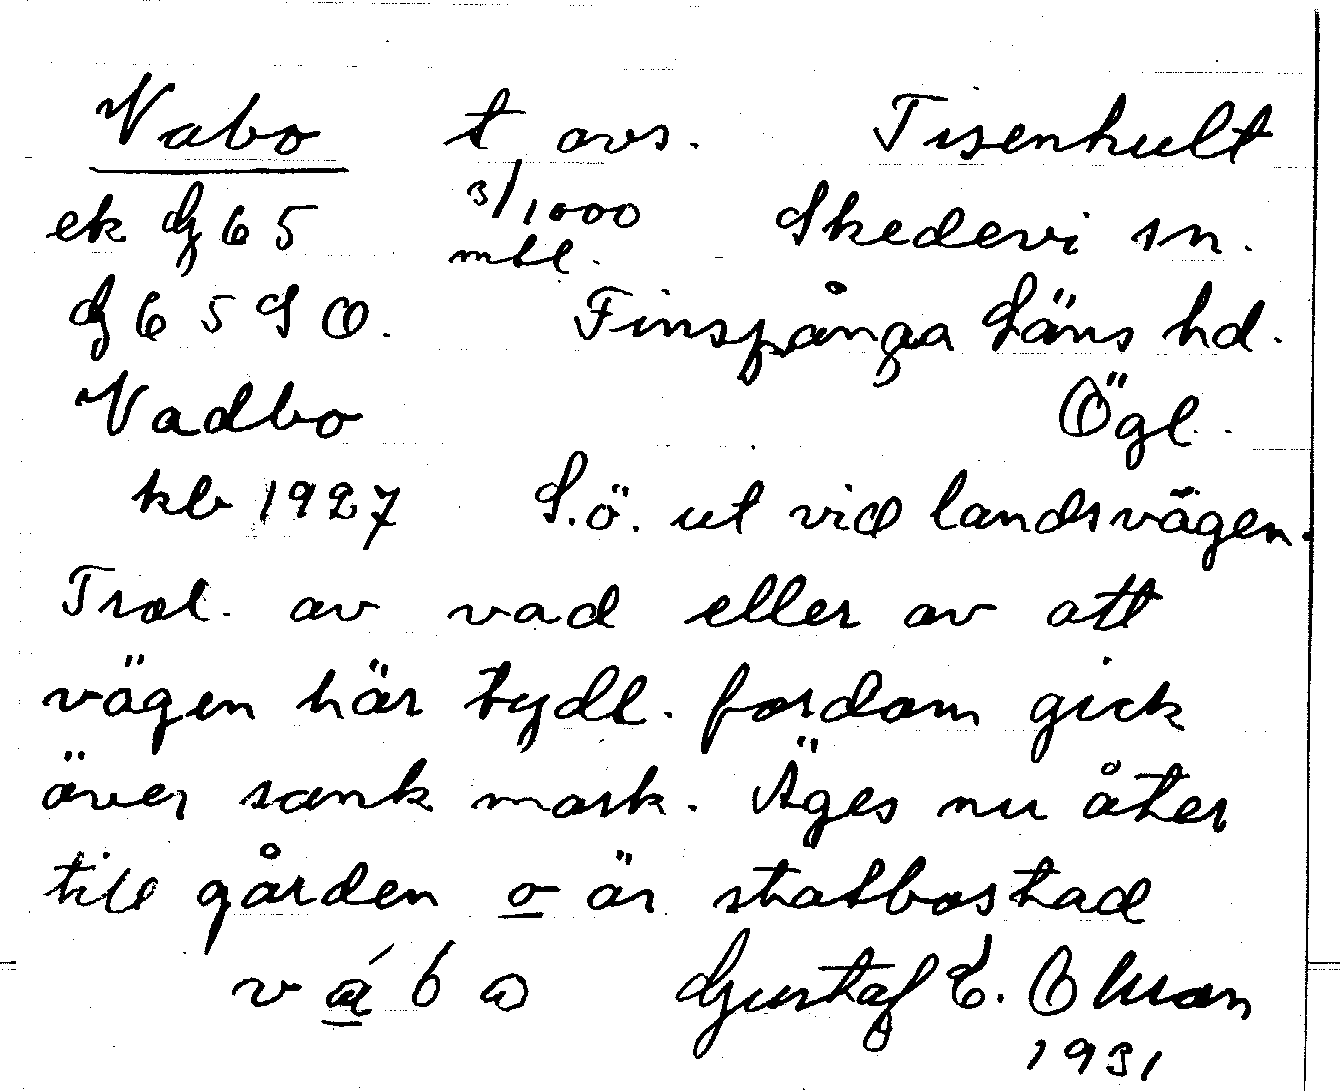 Vabo t avs. Tisenhult
ek G 65 3/1000 Skedevi sn.
mtl.
G 65 SO. Finspånga Läns hd.
Vadbo Ögl.
kb 1927 S.ö. ut vid landsvägen.
Trol. av vad eller av att
vägen här tydl. fordom gick
över sank mark. Äges nu åter
till gården o är statbostad
vábo Gustaf E. Ohman
1931